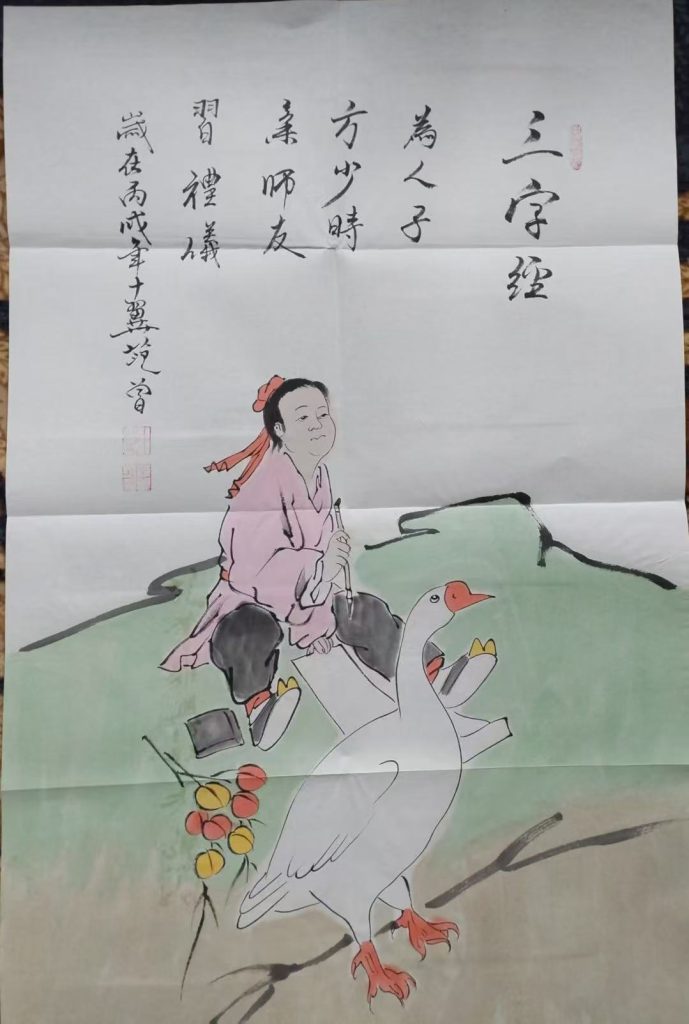 三字經
為人子
方少時
親師友
習禮儀
歲在丙戌年十翼范曾